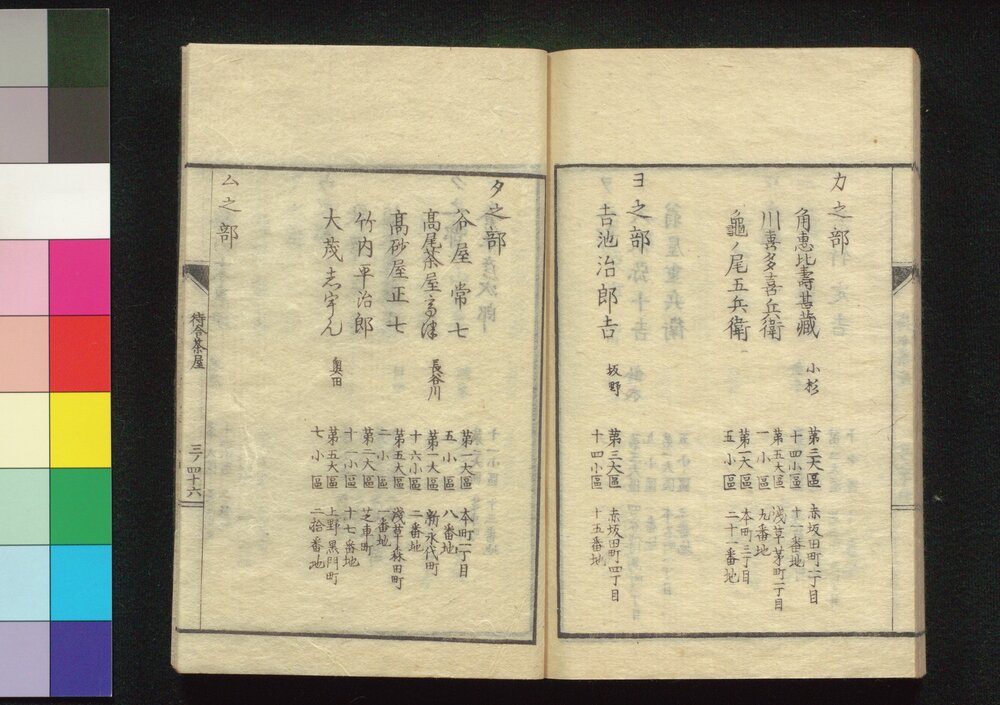 カ之部
角恵比壽甚藏
小杉
第三大區
十四小區
赤坂田町二丁目
十一番地
川喜多喜兵衛
第五大區
一小區
浅草茅町一丁目
九番地
龜ノ尾五兵衛
第一大區
五小區
本町三丁目
二十一番地
ヨ之部
吉池治郎吉
坂野
第三大區
十四小區
赤坂田町四丁目
十五番地
タ之部
谷屋常七
第一大區
五小區
本町二丁目
八番地
髙尾茶屋
長谷川
第一大區
十六小區
新永代町
二番地
髙砂屋正七
第五大區
二小區
浅草森田町
一番地
竹内平治郎
第二大區
十一小區
芝車町
十七番地
大茂志宇ん
奥田
第五大區
七小區
上野黒門町
二拾番地
ム之部
待合茶屋
三ノ四十六